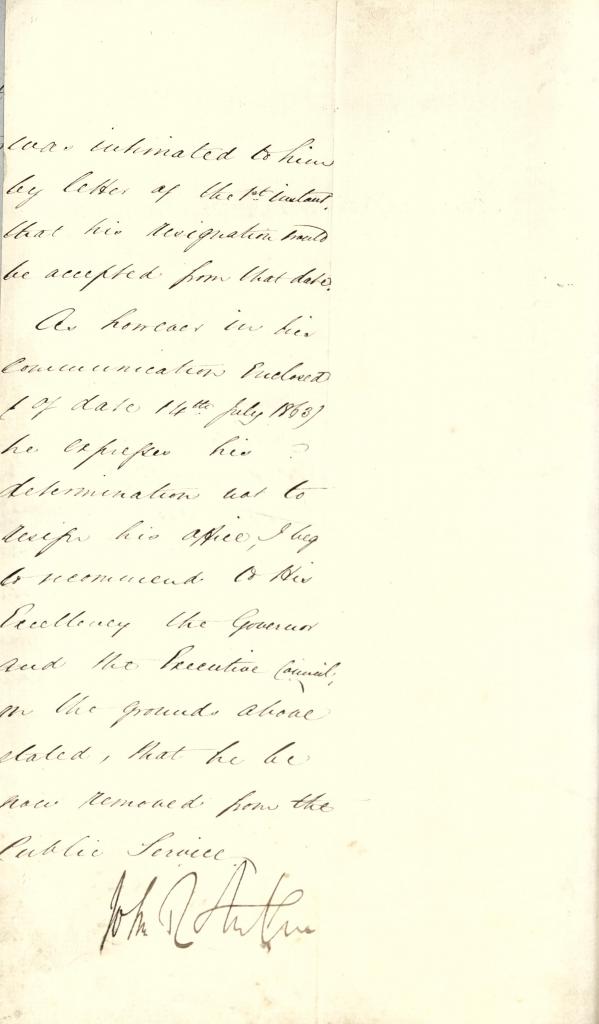 was intimated to him
by letter of the 1st instant,
that his resignation would
be accepted from that date.
As however in his
communication Enclosed
(of date 14th July 1863)
he expresses his
determination not to
resign his office, I beg
to recommend to His
Excellency the Governor
and the Executive Council,
on the grounds above
stated, that he be
now removed from the
Public Service.
John R